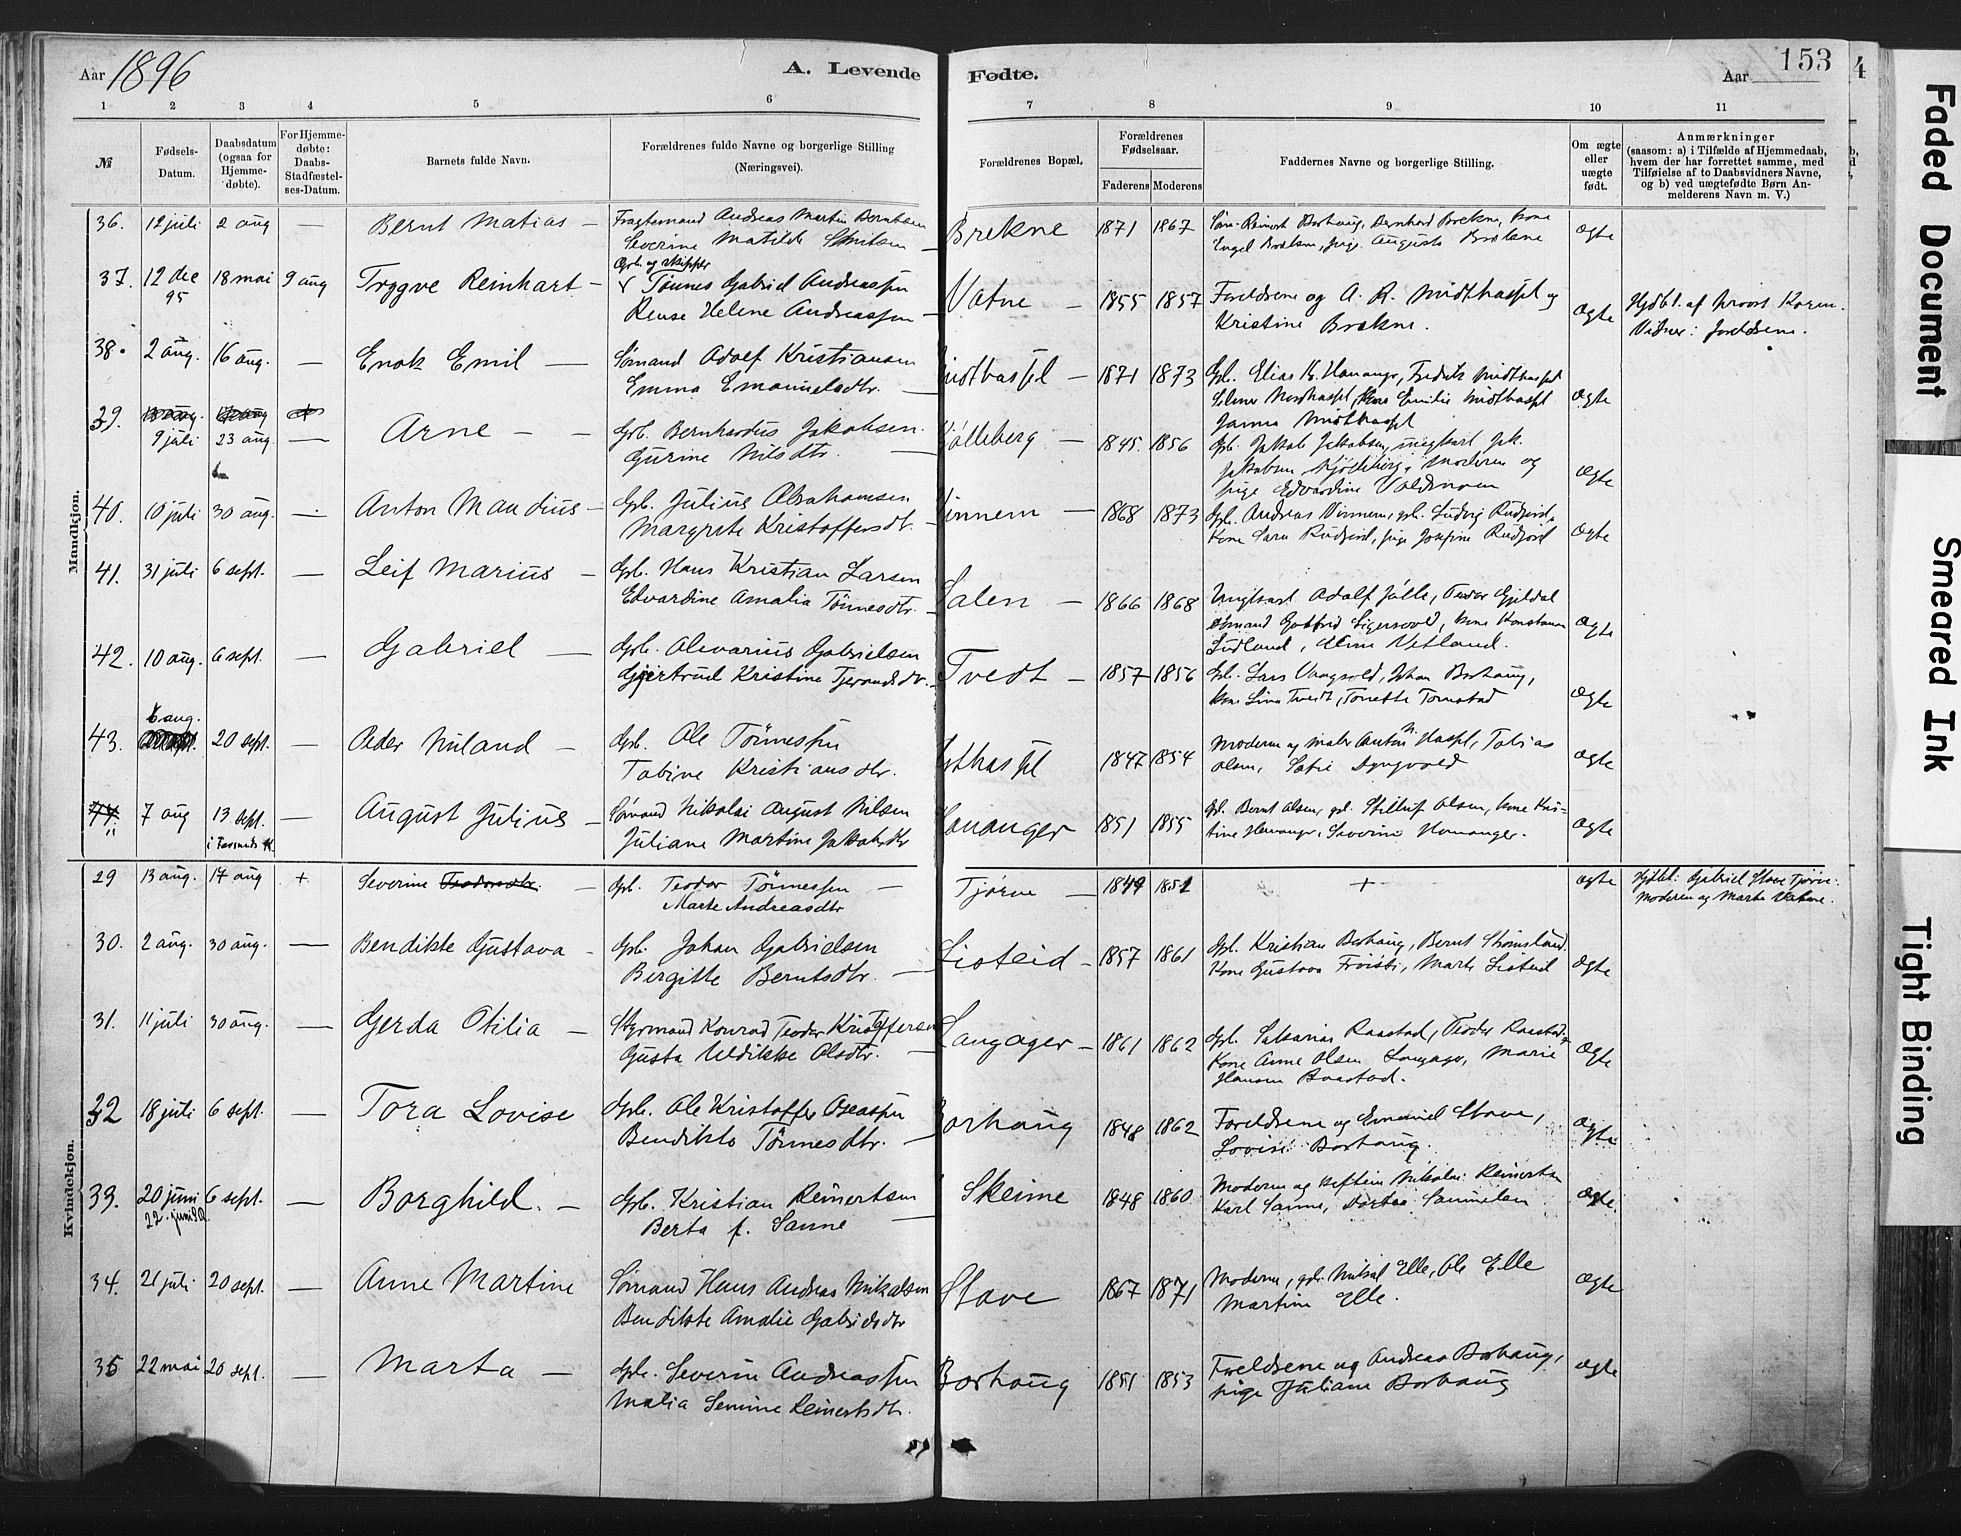 Aar 1896
A. Levende Fødte.
Aar
153
4
1 2 3 4 5 6 7 8 9 10 11
№
Fødsels-
Datum.
Daabsdatum
(ogsaa for
Hjemme-
døbte).
For Hjemme-
døbte:
Daabs-
Stadfæstel-
ses-Datum.
Barnets fulde Navn.
Forældrenes fulde Navne og borgerlige Stilling
(Næringsvei).
Forældrenes Bopæl.
Forældrenes
Fødselsaar.
Faderens Moderens
Faddernes Navne og borgerlige Stilling.
Om ægte
eller
uægte
født.
Anmærkninger
(saasom: a) i Tilfælde af Hjemmedaab,
hvem der har forrettet samme, med
Tilføielse af to Daabsvidners Navne,
og b) ved uægtefødte Børn An-
melderens Navn m. V.)
Mandkjøn.
36. 12 juli 2 aug — Bernt Matias — Fragtemand Andreas Martin Berntsen
Severine Matilde
Brekne 1871 1867 Reinert Borhaug, Bernhard Brekne, kone
Engel Brekne, pige Augusta Brekne
ægte
37. 12 dec 95 18 mai 9 aug Trygve Reinhart — Gbr. og skipper
Tønnes Gabriel Andreassen
Helene Andreassen —
Vatne — 1855 1857 Foreldrene og A. R. Midthassel og
Kristine Brekne.
ægte Hjdbt. af provst Koren.
Vidner: foreldrene.
38. 2 aug. 16 aug. — Enok Emil — Sømand Adolf Kristiansen
Emma Emanuelsdtr. —
Midthassel — 1871 1873 Gbr. Elias K. Hananger, Fredrik Midthassel
Midthassel, kone Emilie Midthassel
Midthassel
ægte
39. 9 juli 23 aug. — Arne — — Gbr. Bernhardus Jakobsen
Gurine Nilsdtr. —
Kjølleberg — 1845. 1856 Gbr. Jakob Jakobsen, ungkarl Jak.
Jakobsen Kjølleberg, Moderen og
pige Edvardine
ægte
40. 10 juli 30 aug. — Anton Mandius — Gbr. Julius Abrahamsen
Margrete Kristoffersdt.
Vinnem — 1868 1873 Gbr. Andreas Vinnem, gbr. Ludvig Rudjord,
kone Sara Rudjord, pige Josefine Rudjord
ægte
41. 31 juli 6 sept. — Leif Marius — Gbr. Hans Kristian Larsen
Edvardine Amalia Tønnesdtr. —
Salen — 1866 1868 Ungkarl Adolf Jølle, Teodor Gjeldal
sømand Gotfrid Sigersvold, kone Konstanse
Ludland, Vetland.
ægte
42. 10 aug. 6 sept. — Gabriel — Gbr. Olevarius Gabrielsen
Gjertrud Kristine Tjerandsdtr. —
Tvedt — 1857 1856 Gbr. Lars Vangsvold, Johan Borhaug,
kone Lina Tvedt, Tonette
ægte
43. 6 aug. 20 sept. — Peder Miland — Gbr. Ole Tønnessen
Tobine Kristiansdtr.
Østhassel 1847 1854 Moderen og maler Anton Hassel, Tobias
Olsen, Dyngvold
ægte
44. 7 aug 13 sept. — August Julius — Sømand Nikolai August Nilsen
i Farsunds K. Juliane Martine Jakobsdtr
Hananger 1851 1855 Gbr. Bernt Olsen, gbr. Olsen, kone Kris-
tine Hananger, Severine Hananger.
ægte
Kvindekjøn.
29 13 aug. 17 aug + Severine — Gbr. Teodor Tønnessen —
Marte Andreasdtr
Tjørve — 1849 1851 + ægte Hjdbt: Gabriel Stave Tjørve:
Moderen og Marte Vatne.
30. 2 aug. 30 aug. — Bendikte Gustava — Gbr. Johan Gabrielsen
Bergitte Berntsdtr. —
Listeid — 1857 1861 Gbr. Kristian Borhaug, Bernt Strømsland.
kone Gustava Frøisti, Marte Listeid
ægte
31. 11 juli 30 aug. — Gerda Otilia — Styrmand Konrad Teodor Kristoffersen
Gusta Uldikke Olsdtr. —
Langager — 1861 1862 Gbr. Sakarias Raastad, Teodor Raastad,
kone Anne Olsen Langager, Marie
Hansen Raastad.
ægte
32 18 juli 6 sept. — Tora Lovise Gbr. Ole Kristoffer Oseassen
Bendikte Tønnesdtr. —
Borhaug 1848 1862 Foreldrene og Emanuel Stave,
Lovise Borhaug.
ægte
33. 20 juni 6 sept. — Borghild. — Gbr. Kristian Reinertsen —
22. juni Berta f. Sanne
Skeime 1848 1860 Moderen og Nikolai Reinertsen
Karl Sanne, Dortea Samuelsen
ægte.
34. 21 juli 20 sept. — Anne Martine Sømand Hans Andreas Mikalsen
Bendikte Amalie Gabrielsdtr
Stave 1867 1871 Moderen, gbr. Mikal Elle, Ole Elle
Martine Elle.
ægte
35 22 mai 20 sept. — Marta — Gbr. Severin Andreassen
Malia Semine Reinertsdtr.
Borhaug 1851 1853 Foreldrene og Andreas Borhaug,
pige Juliane Borhaug
ægte
Faded Document
Smeared Ink
Tight Binding